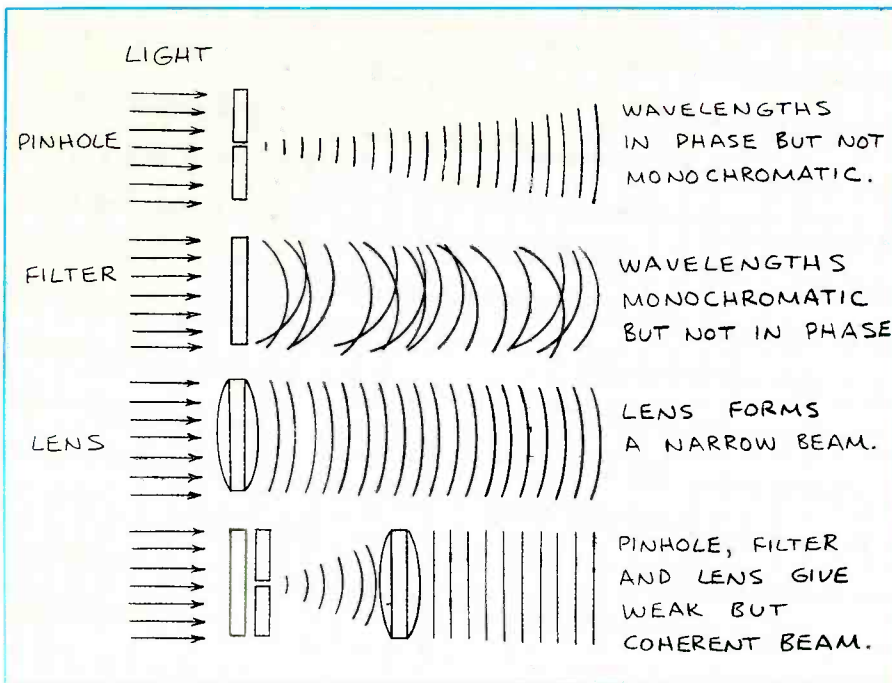 LIGHT
PINHOLE
WAVELENGTHS
IN PHASE BUT NOT
MONOCHROMATIC.
FILTER
WAVELENGTHS
MONOCHROMATIC
BUT NOT IN PHASE
LENS
LENS FORMS
A NARROW BEAM.
PINHOLE, FILTER
AND LENS GIVE
WEAK BUT
COHERENT BEAM.